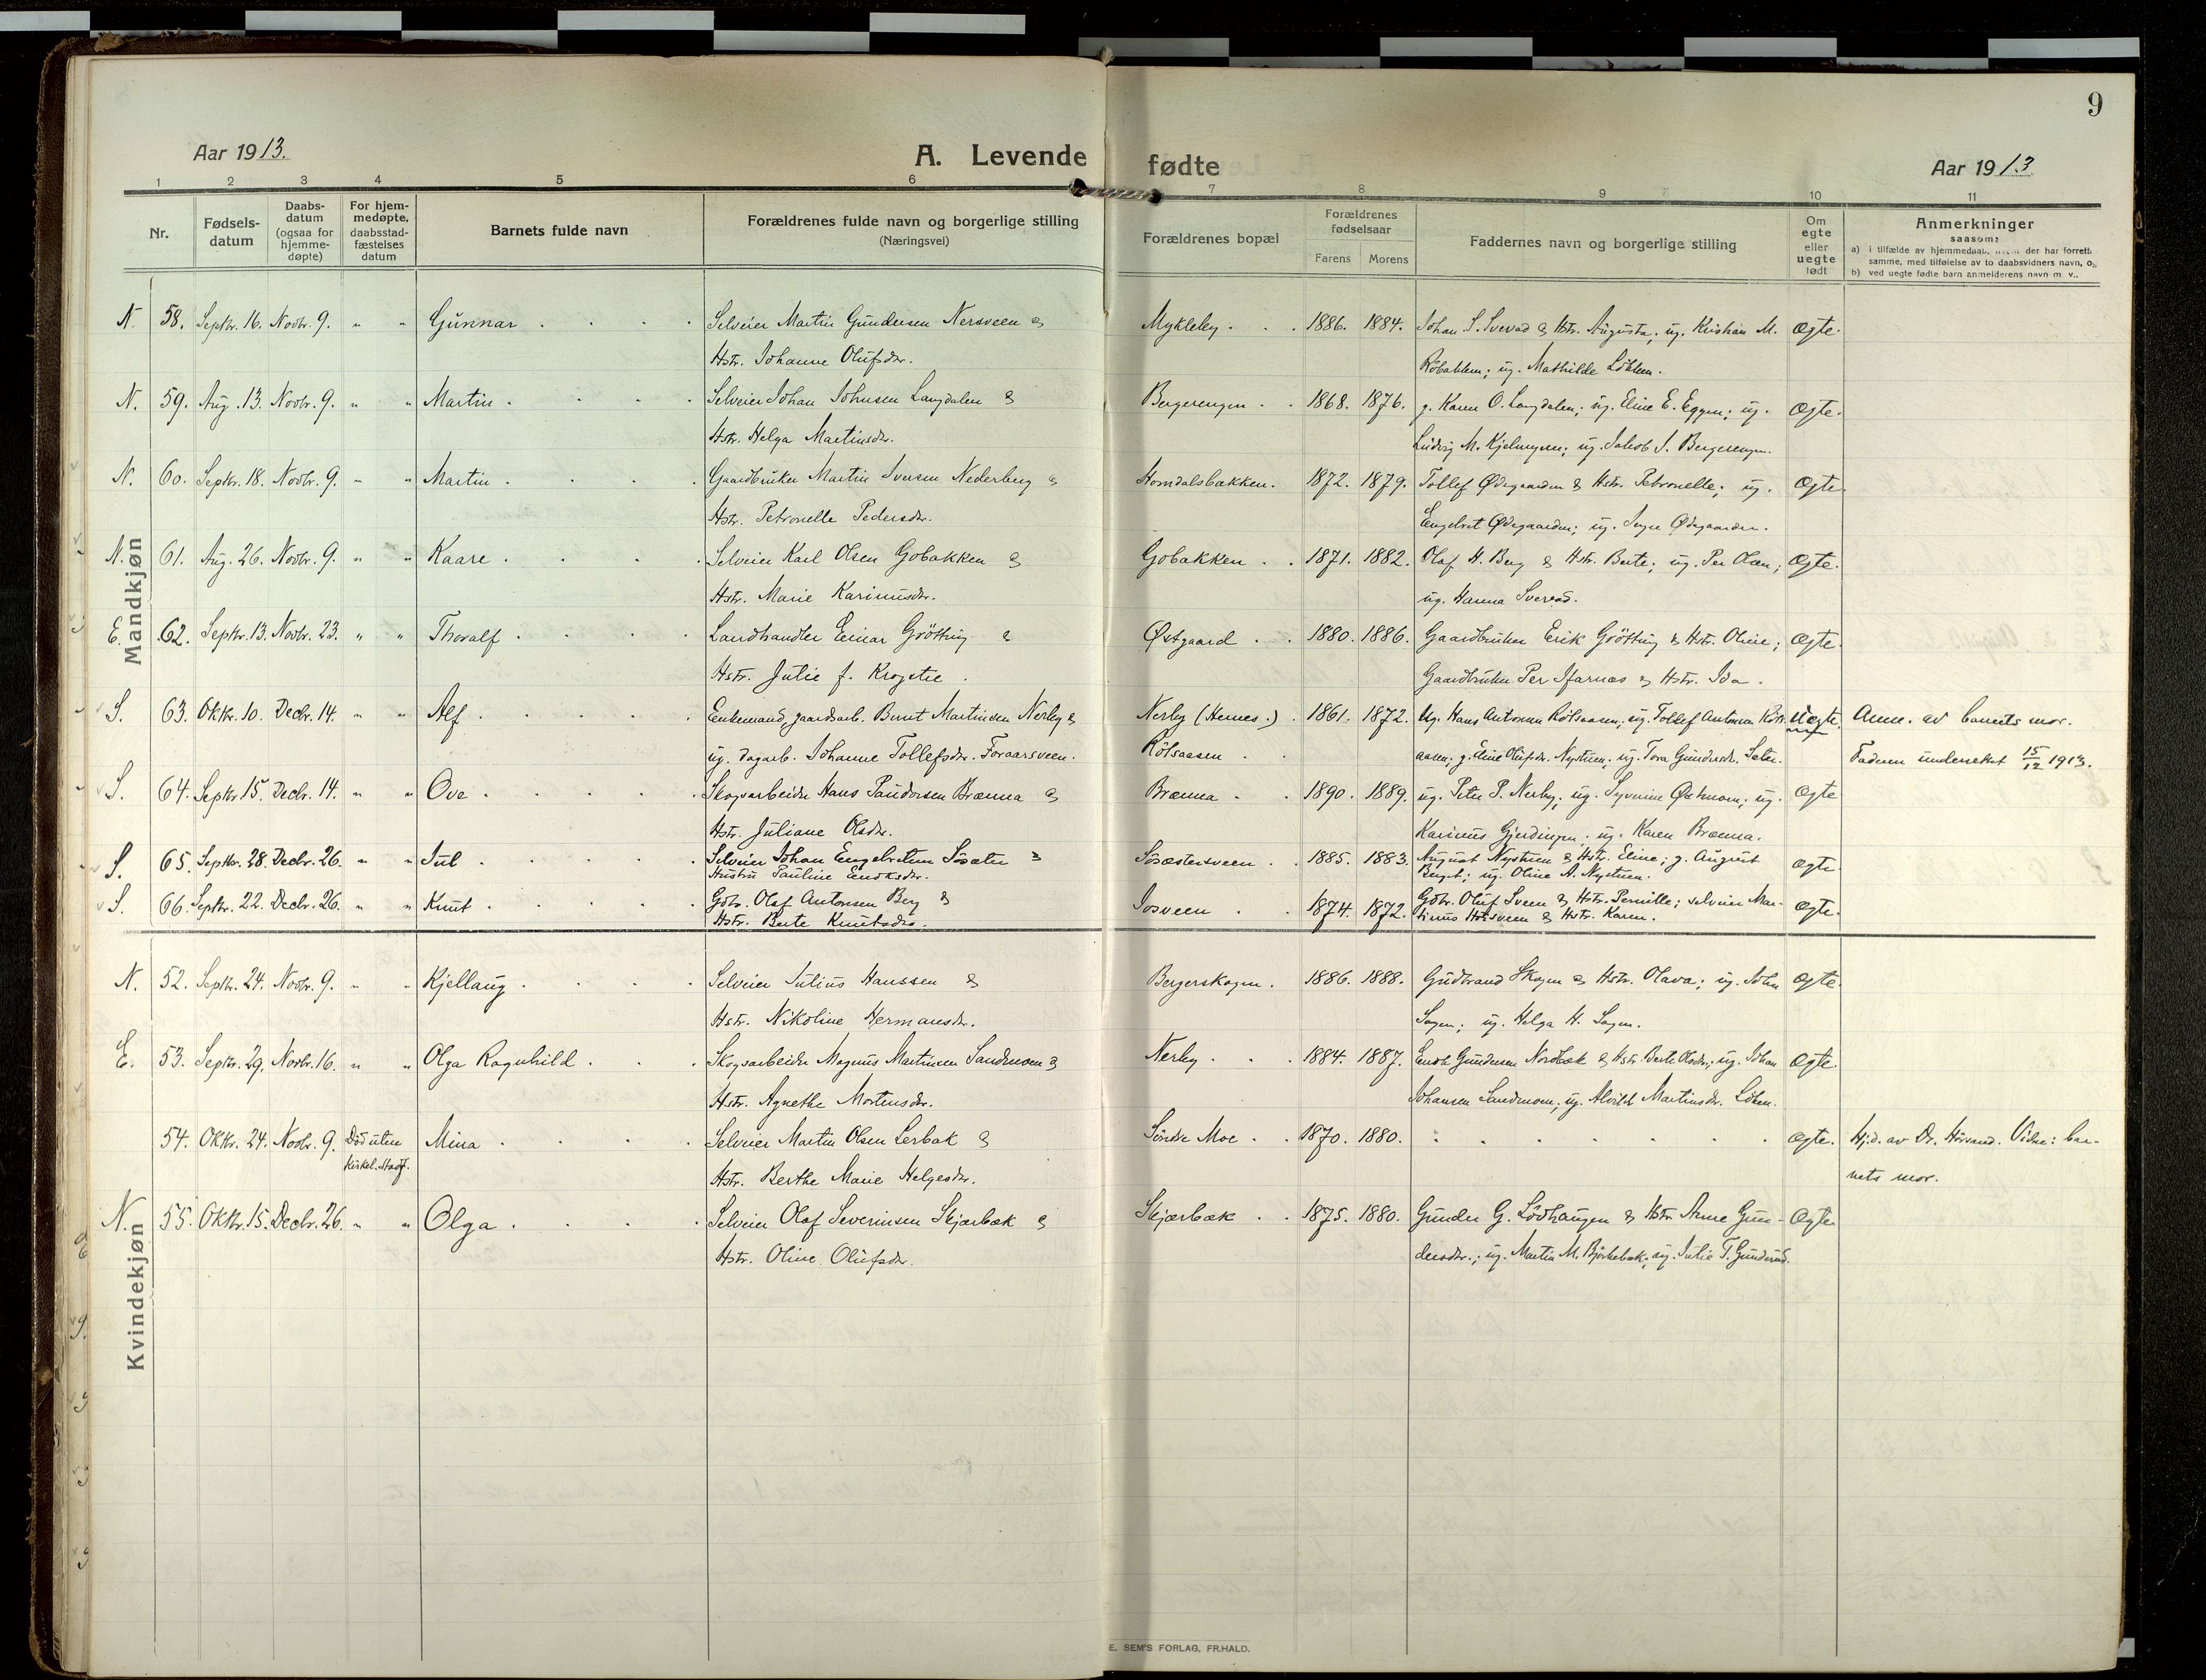 9
Aar 1913.
A. Levende fødte
Aar 1913
1 2 3 4 5 6 7 8 9 10 11
Nr.
Fødsels-datum
Daabs-datum (ogsaa for hjemme-døpte)
For hjem-medøpte, daabsstad-fæstelses datum
Barnets fulde navn
Forældrenes fulde navn og borgerlige stilling
(Næringsvei)
Forældrenes bopæl
Forældrenes fødselsaar
Farens Morens
Faddernes navn og borgerlige stilling
Om egte eller uegte født
Anmerkninger
saasom:
a) i tilfælde av hjemmedaab, der har forrett
samme, med tilføielse av to daabsvidners navn, og
b) ved uegte fødte barn anmelderens navn m. v.
Mandkjøn
N. 58. Septbr. 16. Novbr. 9. " " Gunnar . . . . Selveier Martin Gundersen Nersveen & Mykleby . . . 1886. 1884. Johan S. Svevad & Hstr. Augusta; ug. Kristian M. Ægte.
Hstr. Johanne Olufsdr. ug. Mathilde Löken.
N. 59. Aug. 13. Novbr. 9. " " Martin . . . . Selveier Johan Johnsen Langdalen & Bergerengen . . 1868. 1876. g. Karen O. Langdalen; ug. Eline E. Eggen; ug. Ægte.
Hstr. Helga Martinsdr. Ludvig M. ug. Jakob J. Bergerengen.
N. 60. Septbr. 18. Novbr. 9. " " Martin . . . . Gaardbruker Martin Iversen Nederberg & Homdalsbakken. 1872. 1879. Tollef Ødegaarden & Hstr. Petronelle; ug. Ægte.
Hstr. Petronelle Pedersdr. Engebret Ødegaarden; ug. Inger Ødegaarden.
N. 61. Aug. 26. Novbr. 9. " " Kaare . . . . Selveier Karl Olsen Gobakken & Gobakken . . 1871. 1882. Olaf H. Berg & Hstr. Berte; ug. Per Olsen; Ægte.
Hstr. Marie Karinusdr. ug. Hanna Svevad.
E. 62. Septbr. 13. Novbr. 23. " " Thoralf . . . . Landhandler Einar Grötting & Østgaard . . 1880. 1886. Gaardbruker Erik Grötting & Hstr. Oline; Ægte.
Hstr. Julie f. Krogstie. Gaardbruker Per Ifarnæs & Hstr. Ida.
S. 63. Oktbr. 10. Decbr. 14. " " Alf . . . . Enkemand, gaardarb. Bernt Martinsen Nerby & Nerby (Hernes.) . 1861. 1872. Ug. Hans Antonsen Rötsaasen; ug. Tollef Antonsen Röts- Uegte. Anm. av barnets mor.
ug. dagarb. Johanne Tollefsdr. Foraarsveen. Rötsaasen . . aasen; g. Eline Olufsdr. Nystuen; ug. Tora Gundersdr. Sæter. Faderen underrettet 15/12 1913.
S. 64. Septbr. 15. Decbr. 14. " " Ove . . . . Skogsarbeider Hans Paudersen Brænna & Brænna . . 1890. 1889. ug. Peter P. Nerby; ug. Syverine Østmoen; ug. Ægte
Hstr. Juliane Olsdr. Karinus Gjerdingen. ug. Karen Brænna.
S. 65. Septbr. 28. Decbr. 26. " " Jul . . . . Selveier Johan Engebretsen Sosæter & Sösæstersveen . . 1885. 1883. August Nystuen & Hstr. Eline; g. August Ægte.
Hustru Pauline Endresdr. Berget; ug. Oline A. Nystuen.
S. 66. Septbr. 22. Decbr. 26. " " Knut . . . . Gdbr. Olaf Antonsen Berg & Josveen . . 1874. 1872. Gdbr. Oluf Sveen & Hstr. Pernille; selveier Mar- Ægte.
Hstr. Berte Knutsdr. tinus Horsveen & Hstr. Karen.
Kvindekjøn
N. 52. Septbr. 24. Novbr. 9. " " Kjellaug . . . . Selveier Julius Hanssen & Bergerskogen . 1886. 1888. Gudbrand Skogen & Hstr. Olava; ug. John Ægte.
Hstr. Nikoline Hermansdr. Sagen; ug. Helga H. Sagen.
E. 53. Septbr. 29. Novbr. 16. " " Olga Ragnhild . . . Skogsarbeider Magnus Martinsen Sandmoen & Nerby . . . 1884. 1887. Endr. Gundersen Nordbæk & Hstr. Berte Olsdr.; ug. Johan Ægte.
Hstr. Agnethe Mortensdr. Johansen Sandmoen; ug. Alvilde Martinsdr. Löken.
54. Oktbr. 24. Novbr. 9. Död uten kirkel. stadf. Mina . . . . Selveier Martin Olsen Lerbak & Söndre Moe . . 1870. 1880. . . . . . . Ægte. Hj.d. av Dr. Hörsand. Vidne: bar-
Hstr. Berthe Marie Helgesdr. nets mor.
N. 55. Oktbr. 15. Decbr. 26. " " Olga . . . . Selveier Olaf Severinsen Skjærbæk & Skjærbæk . . 1875. 1880. Gunder G. Lövhaugen & Hstr. Anne Gun- Ægte.
Hstr. Oline Olufsdr. dersdr.; ug. Martin M. Björkebæk; ug. Julie T. Gunderud.
E. SEM'S FORLAG, FR.HALD.